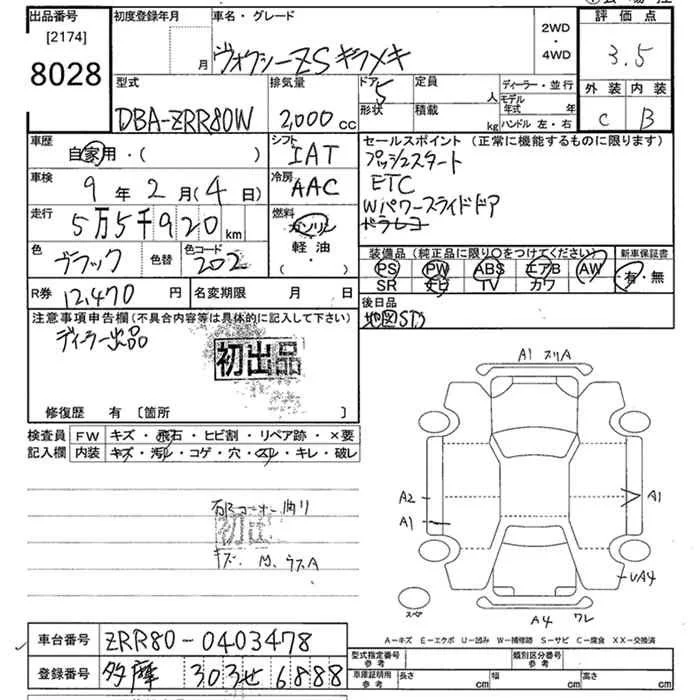 出品番号
[2174]
8028
初度登録年月
月
車名・グレード
ヴォクシーZSキラメキ
2WD
・
4WD
評価点
3.5
外装 内装
C B
型式
DBA-ZRR80W
排気量
2,000 cc
ドア 5
形状
定員 人
積載 kg
ディーラー・並行
モデル年式 年
ハンドル 左・右
車歴
自家用・( )
シフト
IAT
車検
9年2月(4日)
冷房
AAC
走行
5万5千920km
燃料
ガソリン
軽油
・( )
色
ブラック
色替
色コード
202
セールスポイント(正常に機能するものに限ります)
プッシュスタート
ETC
Wパワースライドドア
ドラレコ
装備品(純正品に限り〇をつけてください)
PS PW ABS エアB AW
SR ナビ TV カワ
新車保証書
有・無
R券 12,470円
名変期限 月 日
後日品
注意事項申告欄(不具合内容等は具体的に記入して下さい)
ディーラー出品
初出品
修復歴 有 [箇所 ]
検査員記入欄
FW キズ・飛石・ヒビ割・リペア跡・×要
内装 キズ・汚レ・コゲ・穴・スレ・キレ・破レ
初出
A1 スリA
A2
A1
A1
UA4
スペア
A4 ワレ
A-キズ E-エクボ U-凹み W-補修跡 S-サビ C-腐食 XX-交換済
車台番号 ZRR80-0403478
登録番号 多摩 303 せ 6888
型式指定番号 参考
類別区分番号 参考
車庫証明用 参考 長さ cm 幅 cm 高さ cm